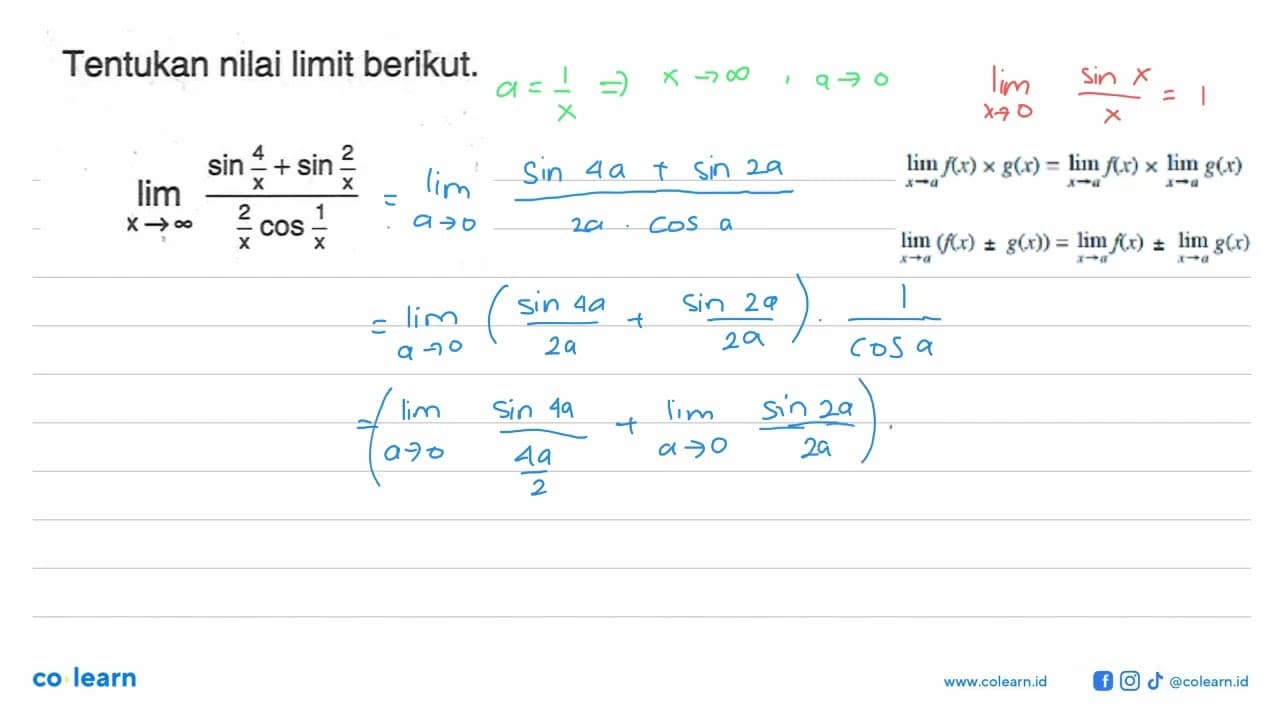 Tentukan nilai limit berikut.
a = 1/x => x → ∞ , a → 0
lim x→0 sin x / x = 1
lim x→∞ (sin 4/x + sin 2/x) / (2/x cos 1/x) = lim a→0 (sin 4a + sin 2a) / (2a . cos a)
lim x→a f(x) × g(x) = lim x→a f(x) × lim x→a g(x)
lim x→a (f(x) ± g(x)) = lim x→a f(x) ± lim x→a g(x)
= lim a→0 (sin 4a / 2a + sin 2a / 2a) . 1 / cos a
= (lim a→0 sin 4a / (4a/2) + lim a→0 sin 2a / 2a) .
co learn
www.colearn.id
@colearn.id